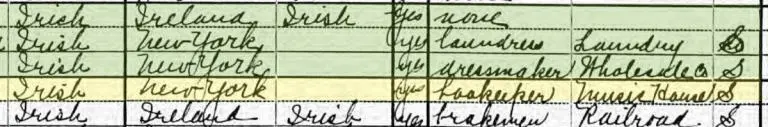 Irish Ireland Irish yes none
Irish New York yes laundress Laundry
Irish New York yes dressmaker Wholesale Co S
Irish New York yes bookeeper Music House S
Irish Ireland Irish yes brakeman Railroad S